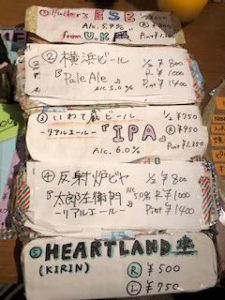 ① Fuller's ESB
Alc. 5.9%
from U.K
½ ¥900
Pint ¥1,600
② 横浜ビール
Pale Ale
Alc 5.0%
½ ¥800
R ¥1000
Pint ¥1400
③ いわて蔵ビール
-リアルエール-
IPA
Alc. 6.0%
½ ¥850
④ 反射炉ビヤ
太郎左衛門
-リアルエール-
Alc 5.0%
½ ¥800
R ¥1000
Pint ¥1400
⑤ HEARTLAND 生
(KIRIN)
R ¥500
L ¥750